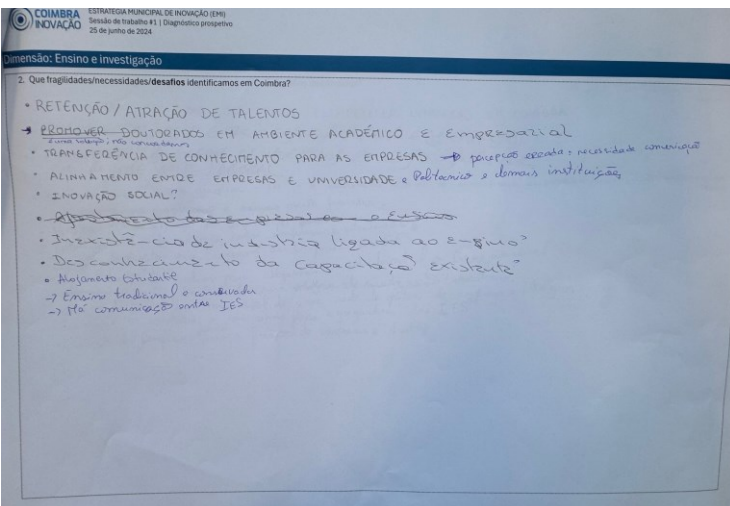 COIMBRA
INOVAÇÃO
ESTRATÉGIA MUNICIPAL DE INOVAÇÃO (EMI)
Sessão de trabalho #1 | Diagnóstico prospetivo
25 de junho de 2024
Dimensão: Ensino e investigação
2. Que fragilidades/necessidades/desafios identificamos em Coimbra?
• RETENÇÃO / ATRAÇÃO DE TALENTOS
→ PROMOVER DOUTORADOS EM AMBIENTE ACADÉMICO E EMPRESARIAL
• TRANSFERÊNCIA DE CONHECIMENTO PARA AS EMPRESAS → percepção errada, necessidade comunicação
• ALINHAMENTO ENTRE EMPRESAS E UNIVERSIDADE e Politecnico e demais instituições
• INOVAÇÃO SOCIAL?
• Inexistência de industria ligada ao ensino
• Desconhecimento da capacitação existente
• Alojamento Estudantil
→ Ensino tradicional e conservador
→ Má comunicação entre IES